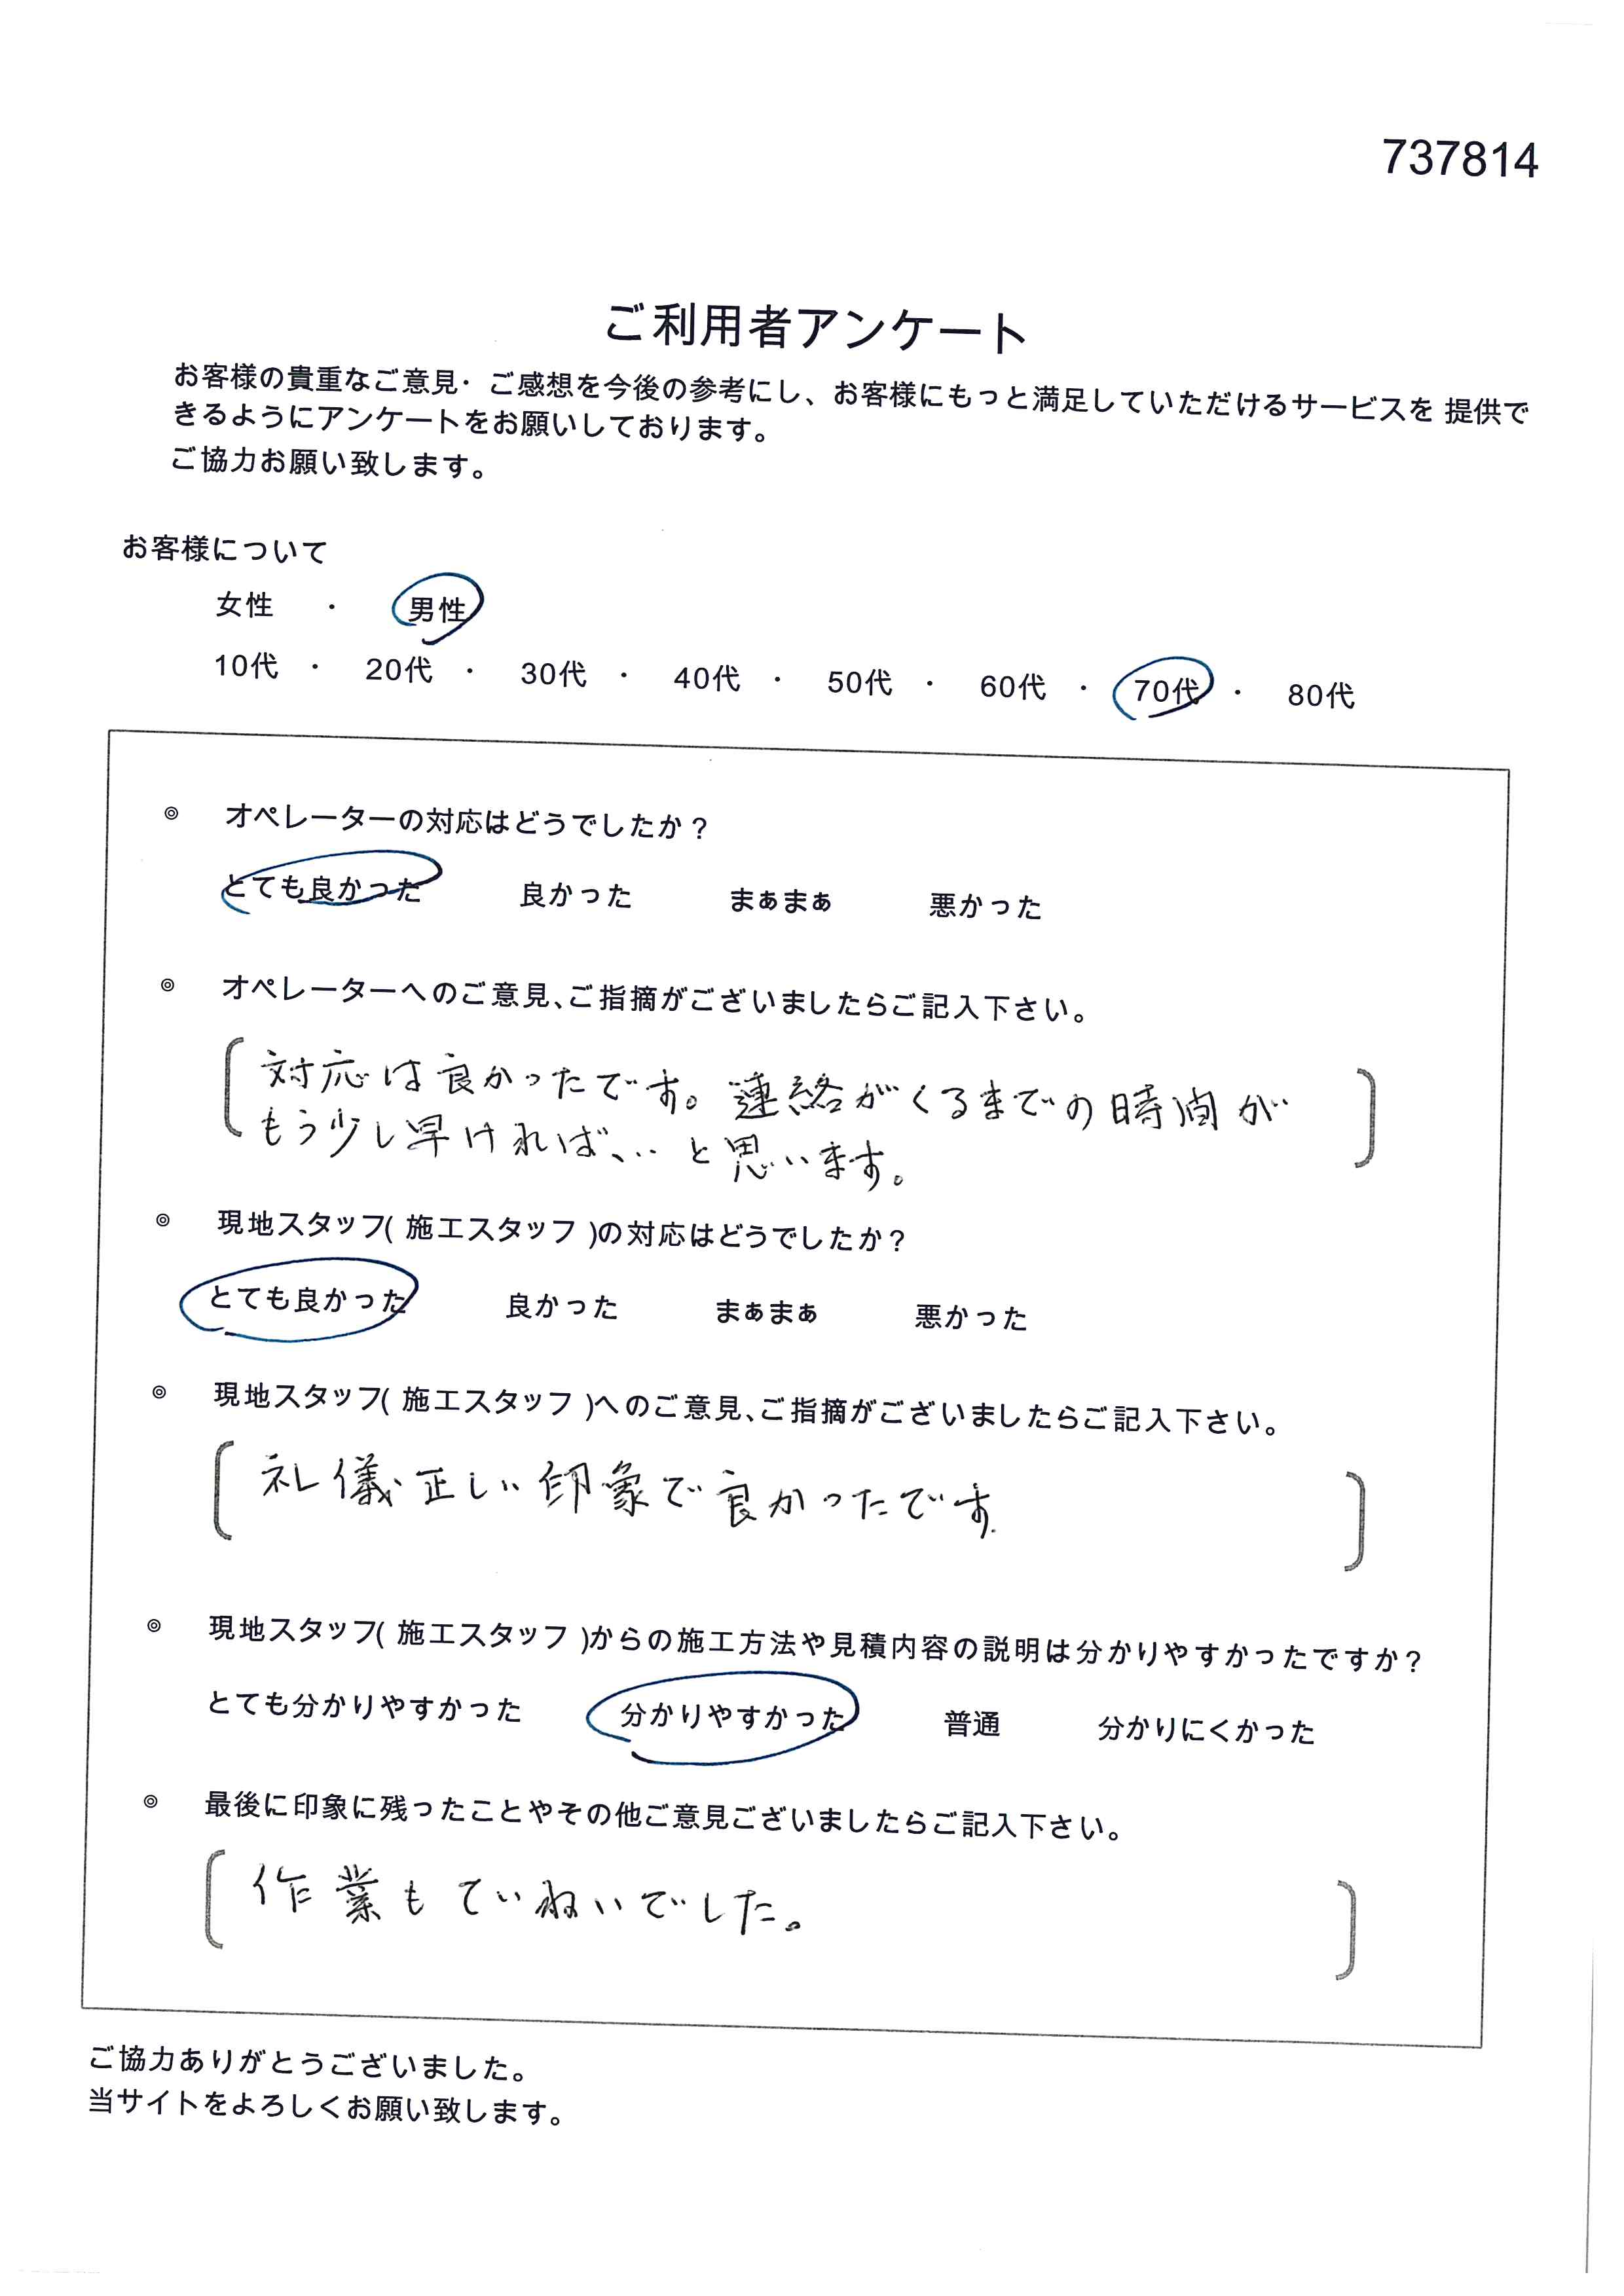 737814
ご利用者アンケート
お客様の貴重なご意見・ご感想を今後の参考にし、お客様にもっと満足していただけるサービスを 提供で
きるようにアンケートをお願いしております。
ご協力お願い致します。
お客様について
女性 ・ 男性
10代 ・ 20代 ・ 30代 ・ 40代 ・ 50代 ・ 60代 ・ 70代 ・ 80代
◎ オペレーターの対応はどうでしたか？
とても良かった 良かった まぁまぁ 悪かった
◎ オペレーターへのご意見、ご指摘がございましたらご記入下さい。
対応は良かったです。連絡がくるまでの時間が
もう少し早ければ、… と思います。
◎ 現地スタッフ( 施工スタッフ )の対応はどうでしたか？
とても良かった 良かった まぁまぁ 悪かった
◎ 現地スタッフ( 施工スタッフ )へのご意見、ご指摘がございましたらご記入下さい。
礼儀正しい印象で良かったです.
◎ 現地スタッフ( 施工スタッフ )からの施工方法や見積内容の説明は分かりやすかったですか？
とても分かりやすかった 分かりやすかった 普通 分かりにくかった
◎ 最後に印象に残ったことやその他ご意見ございましたらご記入下さい。
作業もていねいでした。
ご協力ありがとうございました。
当サイトをよろしくお願い致します。